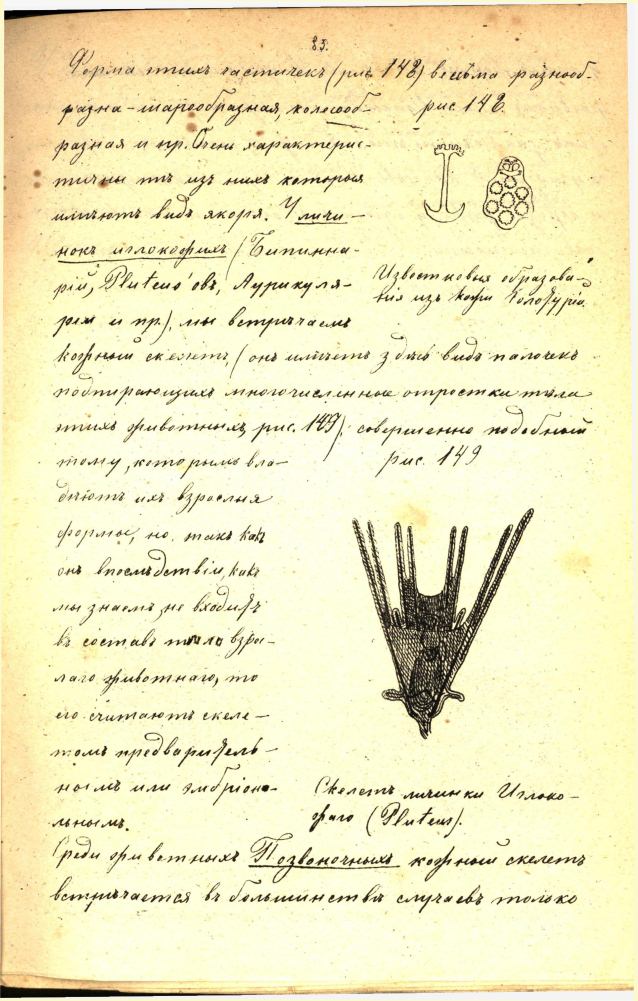 83.
Форма этихъ частичекъ (рис. 148) весьма разнооб-
разна – шарообразная, колесооб-
рис. 148.
разная и пр. Очень характерис-
тичны тѣ изъ нихъ которыя
имѣютъ видъ якоря. У личи-
нокъ иглокожихъ (Бипинна-
рій, Pluteus'овъ, Аурикуля-
рій и пр.), мы встрѣчаемъ
Известковыя образова-
нія изъ кожи Голотурія.
кожный скелетъ, (онъ имѣетъ здѣсь видъ палочекъ
подпирающихъ многочисленные отростки тѣла
этихъ животныхъ, рис. 149), совершенно подобный
тому, которымъ вла-
рис. 149
дѣютъ ихъ взрослыя
формы, но такъ какъ
онъ впослѣдствіи, какъ
мы знаемъ, не входитъ
въ составъ тѣла взро-
лаго животнаго, то
его считаютъ скеле-
томъ предваритель-
нымъ или эмбріона-
льнымъ.
Скелетъ личинки Иглоко-
жаго (Pluteus).
Среди животныхъ Позвоночныхъ кожный скелетъ
встрѣчается въ большинствѣ случаевъ только